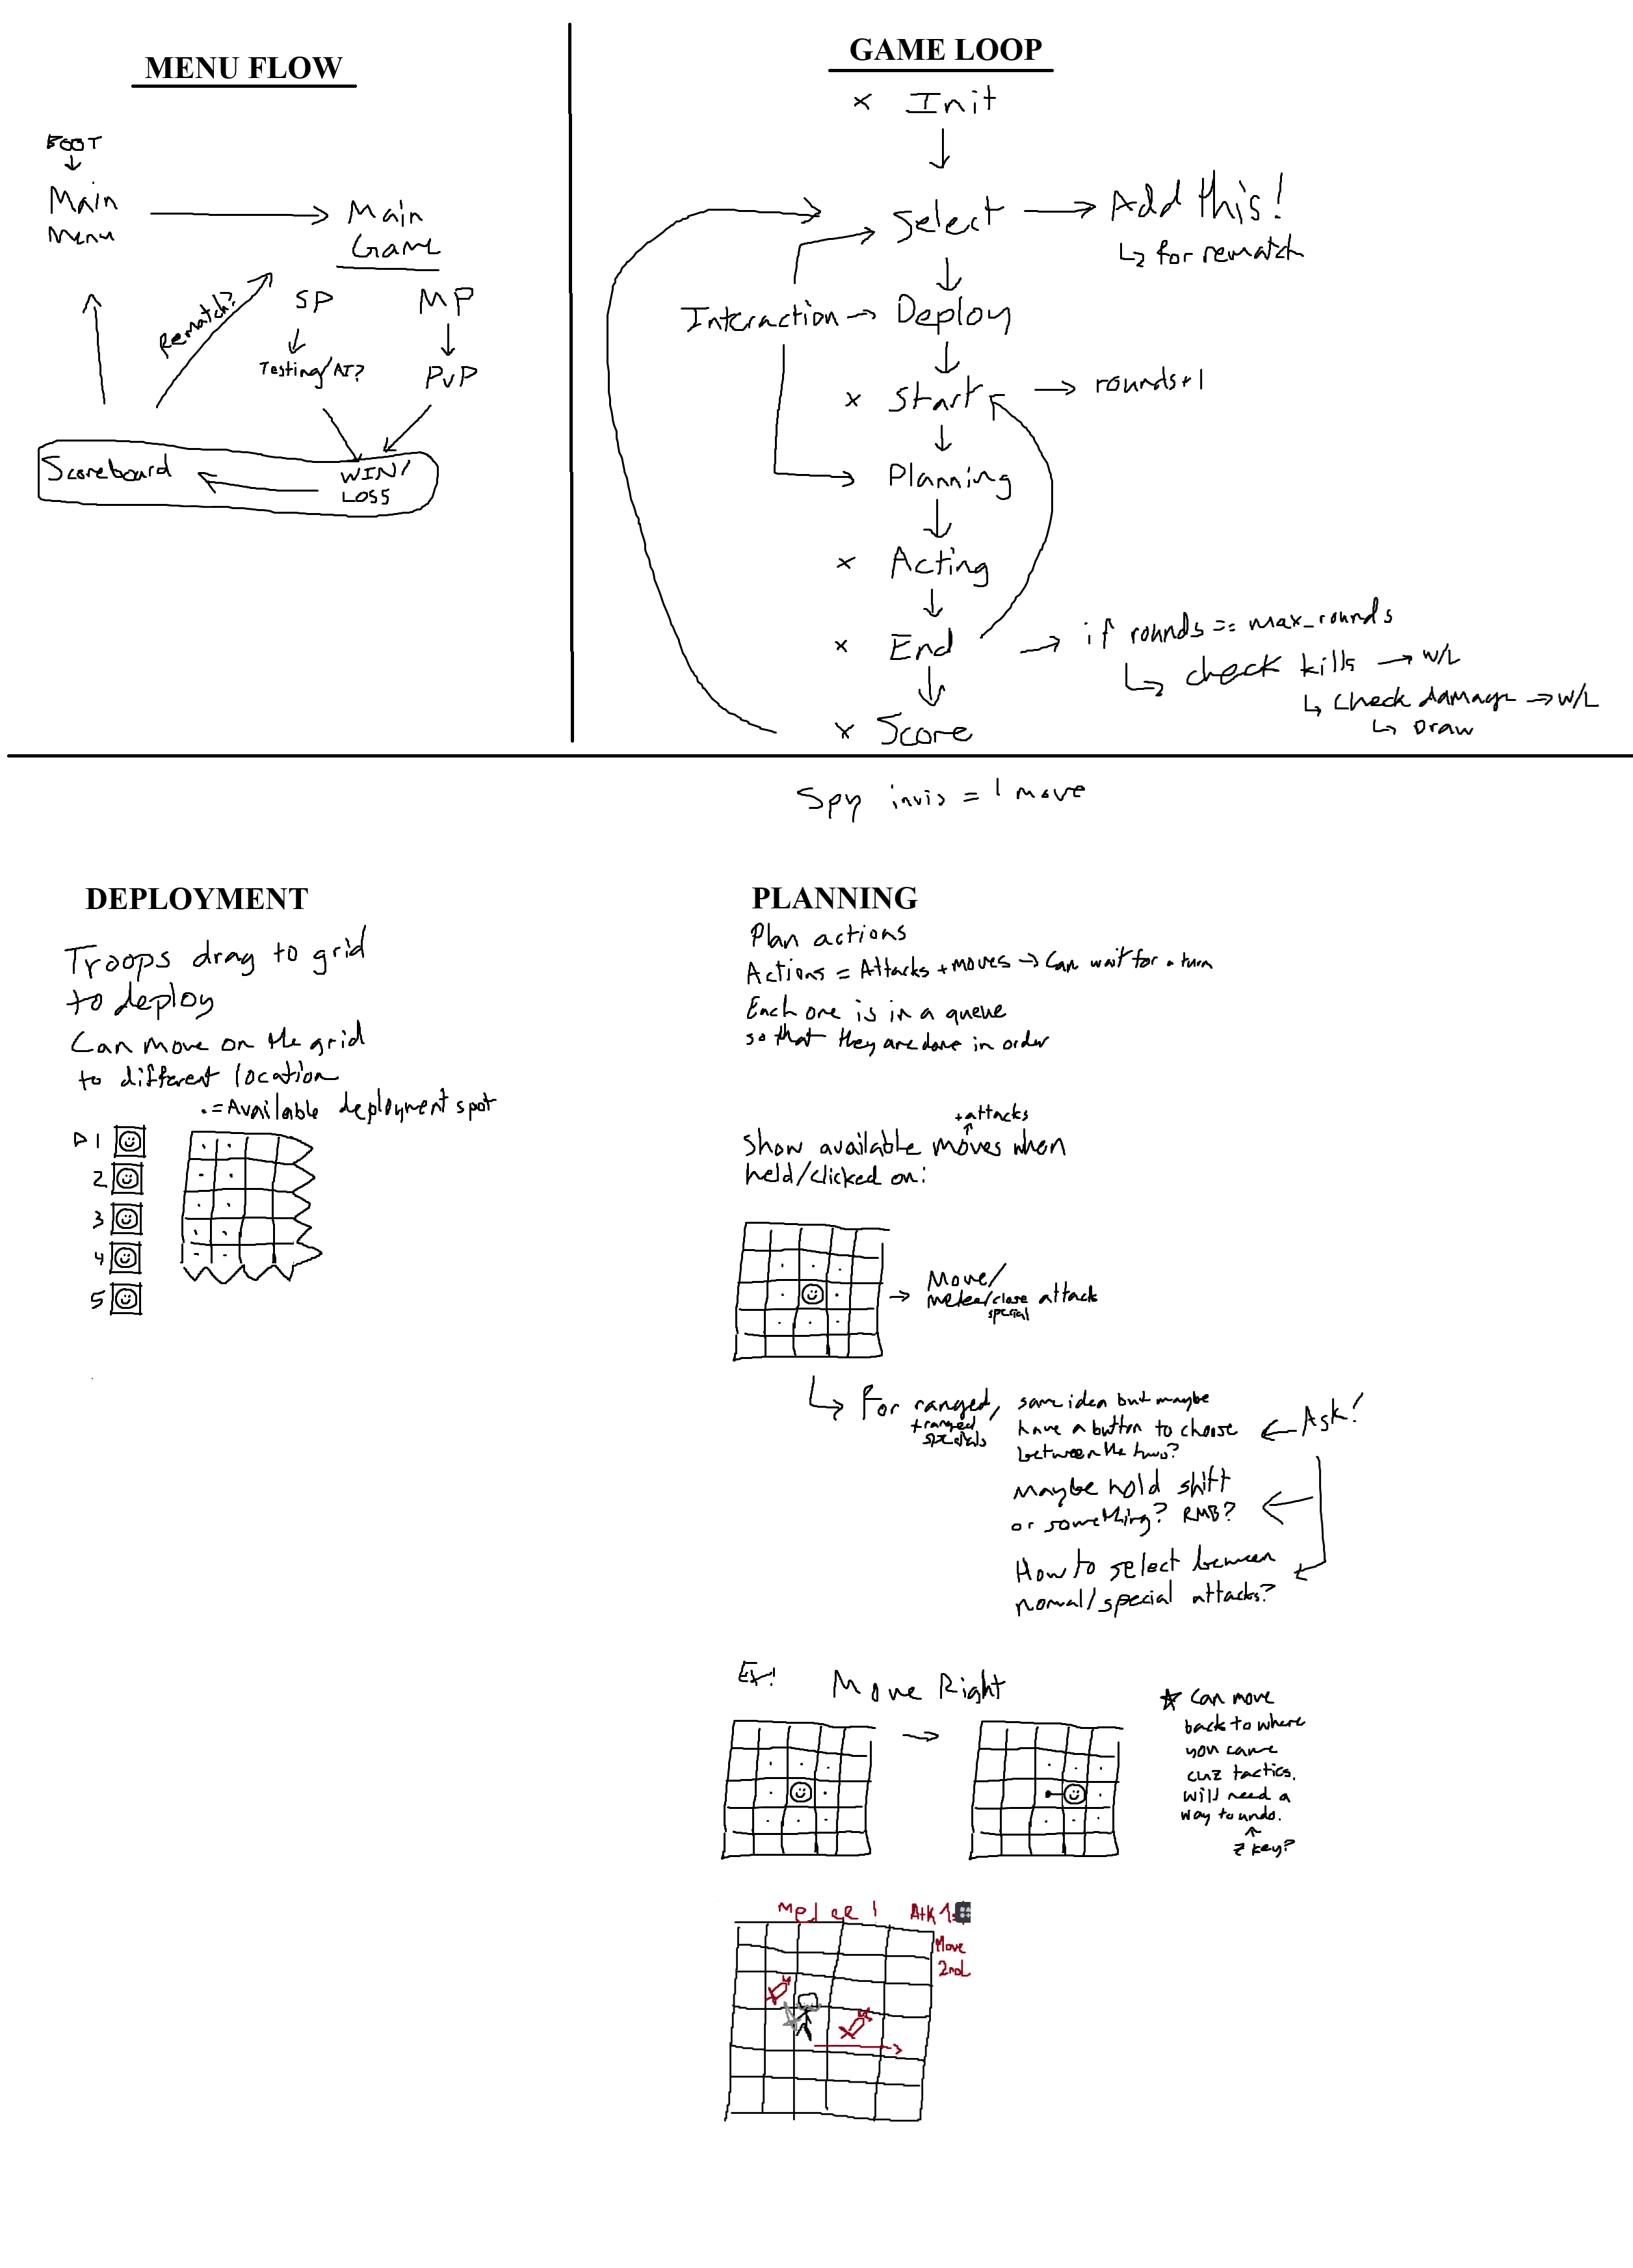 MENU FLOW
BOOT
Main
Menu
Main
Game
Rematch?
SP
MP
Testing/AI?
PvP
Scoreboard
WIN/
LOSS
GAME LOOP
x Init
Select
Add this!
for rematch
Interaction
Deploy
x Start
rounds+1
Planning
x Acting
x End
if rounds == max_rounds
check kills → W/L
check damage → W/L
Draw
x Score
Spy invis = 1 move
DEPLOYMENT
Troops drag to grid
to deploy
Can move on the grid
to different location
. = Available deployment spot
1
2
3
4
5
PLANNING
Plan actions
Actions = Attacks + moves → Can wait for a turn
Each one is in a queue
so that they are done in order
+attacks
Show available moves when
held/clicked on:
Move/
melee/close attack
special
For ranged,
+ranged
specials
same idea but maybe
have a button to choose
between the two?
Ask!
Maybe hold shift
or something? RMB?
How to select between
normal/special attacks?
Ex!
Move Right
Can move
back to where
you came
cuz tactics.
will need a
way to undo.
Z key?
Melee!
Atk
Move
2nd